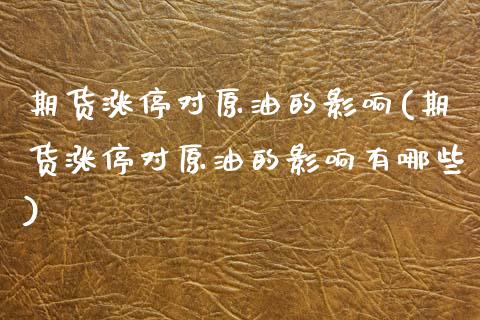 期货涨停对原油的影响(期
货涨停对原油的影响有哪些
)